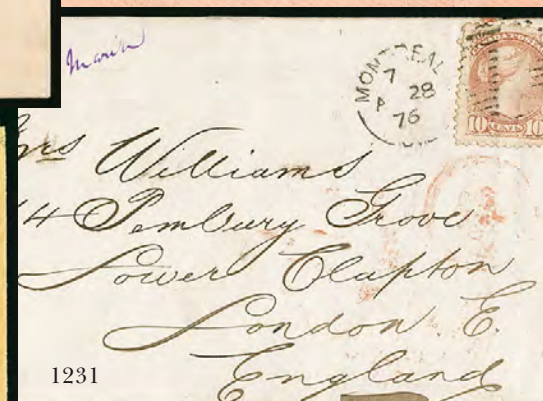 Marin
MONTREAL
7
28
P
76
10 CENTS 10
Mrs Williams
14 Pembury Grove
Lower Clapton
London. E.
England
1231